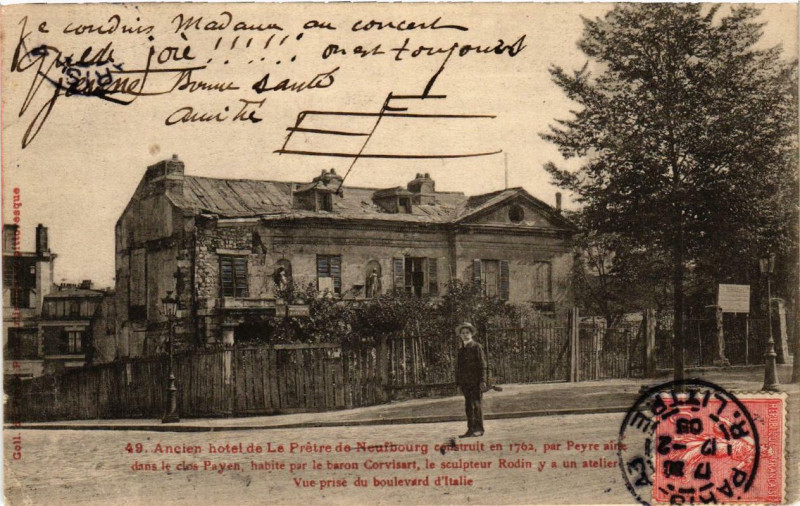 Je conduis Madame au concert
quelle joie !!!!!! on est toujours
jeune Bonne santé
amitié
Coll. P
ittoresque
49. Ancien hotel de Le Prêtre de Neufbourg construit en 1762, par Peyre aîné
dans le clos Payen, habité par le baron Corvisart, le sculpteur Rodin y a un atelier
Vue prise du boulevard d'Italie
PARIS
R. LITTRE